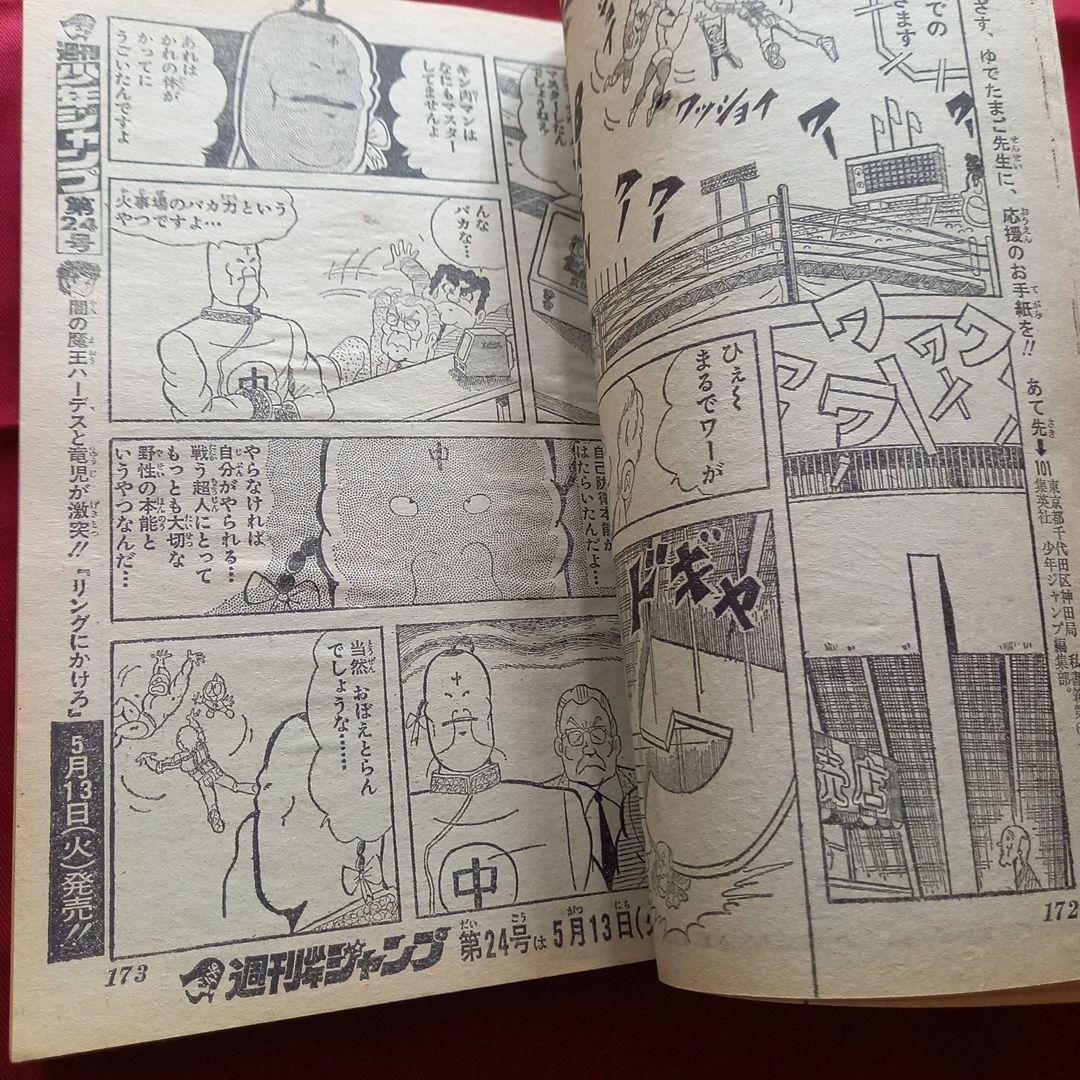 での
きます
ワッショイ
ワー
ワー
ワー
ワー
ワー
ワー
ひぇ〜
まるでワーが
ドギャ
売店
ゆでたまご先生に、応援のお手紙を!! あて先➡
101
東京都千代田区神田局
集英社 少年ジャンプ編集部。
172
マスターしたん
でしょうねえ
キン肉マンは
なにもマスター
してませんよ
あれは
かれの体が
かってに
うごいたんですよ
んな
バカな…
火事場のバカ力という
やつですよ…
自己防衛本能が
はたらいたんだよ…
やらなければ
自分がやられる…
戦う超人にとって
もっとも大切な
野性の本能と
いうやつなんだ…
中
中
中
中
中
当然 おぼえとらん
でしょうな……
週刊少年ジャンプ 第24号
闇の魔王ハーデスと竜児が激突!!『リングにかけろ』
5月13日(火)発売!!
173
週刊少年ジャンプ 第24号は5月13日(